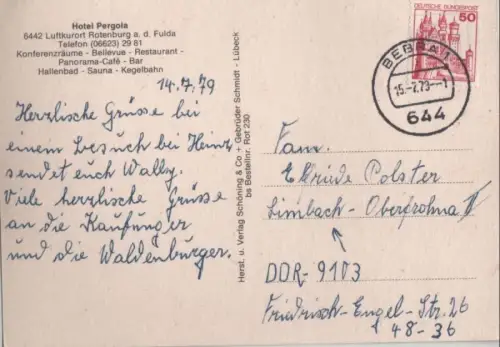 Hotel Pergola
6442 Luftkurort Rotenburg a. d. Fulda
Telefon (06623) 29 81
Konferenzräume - Bellevue - Restaurant -
Panorama-Café - Bar
Hallenbad - Sauna - Kegelbahn
14.7.79
Herzliche Grüsse bei
einem Besuch bei Heinz
sendet euch Wally.
Viele herzliche Grüsse
an die Kaufunger
und die Waldenburger.
Herst. u. Verlag Schöning & Co + Gebrüder Schmidt - Lübeck
bs Bestellnr. Rot 230
DEUTSCHE BUNDESPOST
50
BEBRA
15.-7.79--1
644
Fam.
Elfriede Polster
Limbach-Oberfrohna II
DDR-9103
Friedrich-Engel-Str. 26
48-36